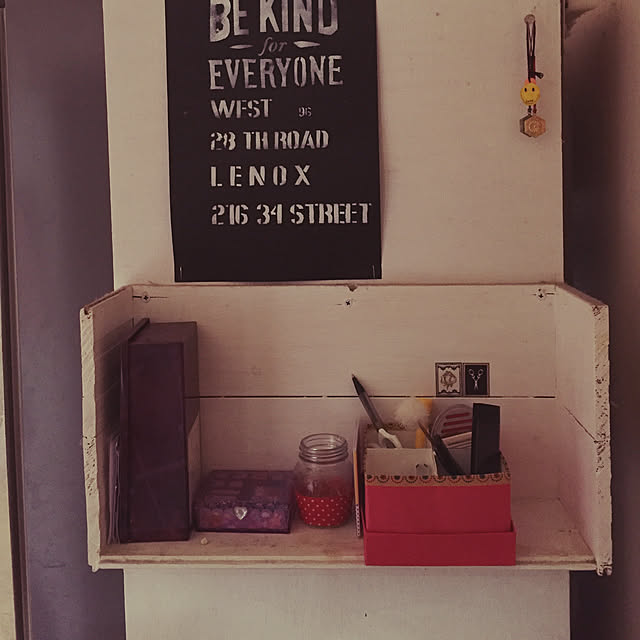 BE KIND
for
EVERYONE
WEST 96
28 TH ROAD
LENOX
216 34 STREET